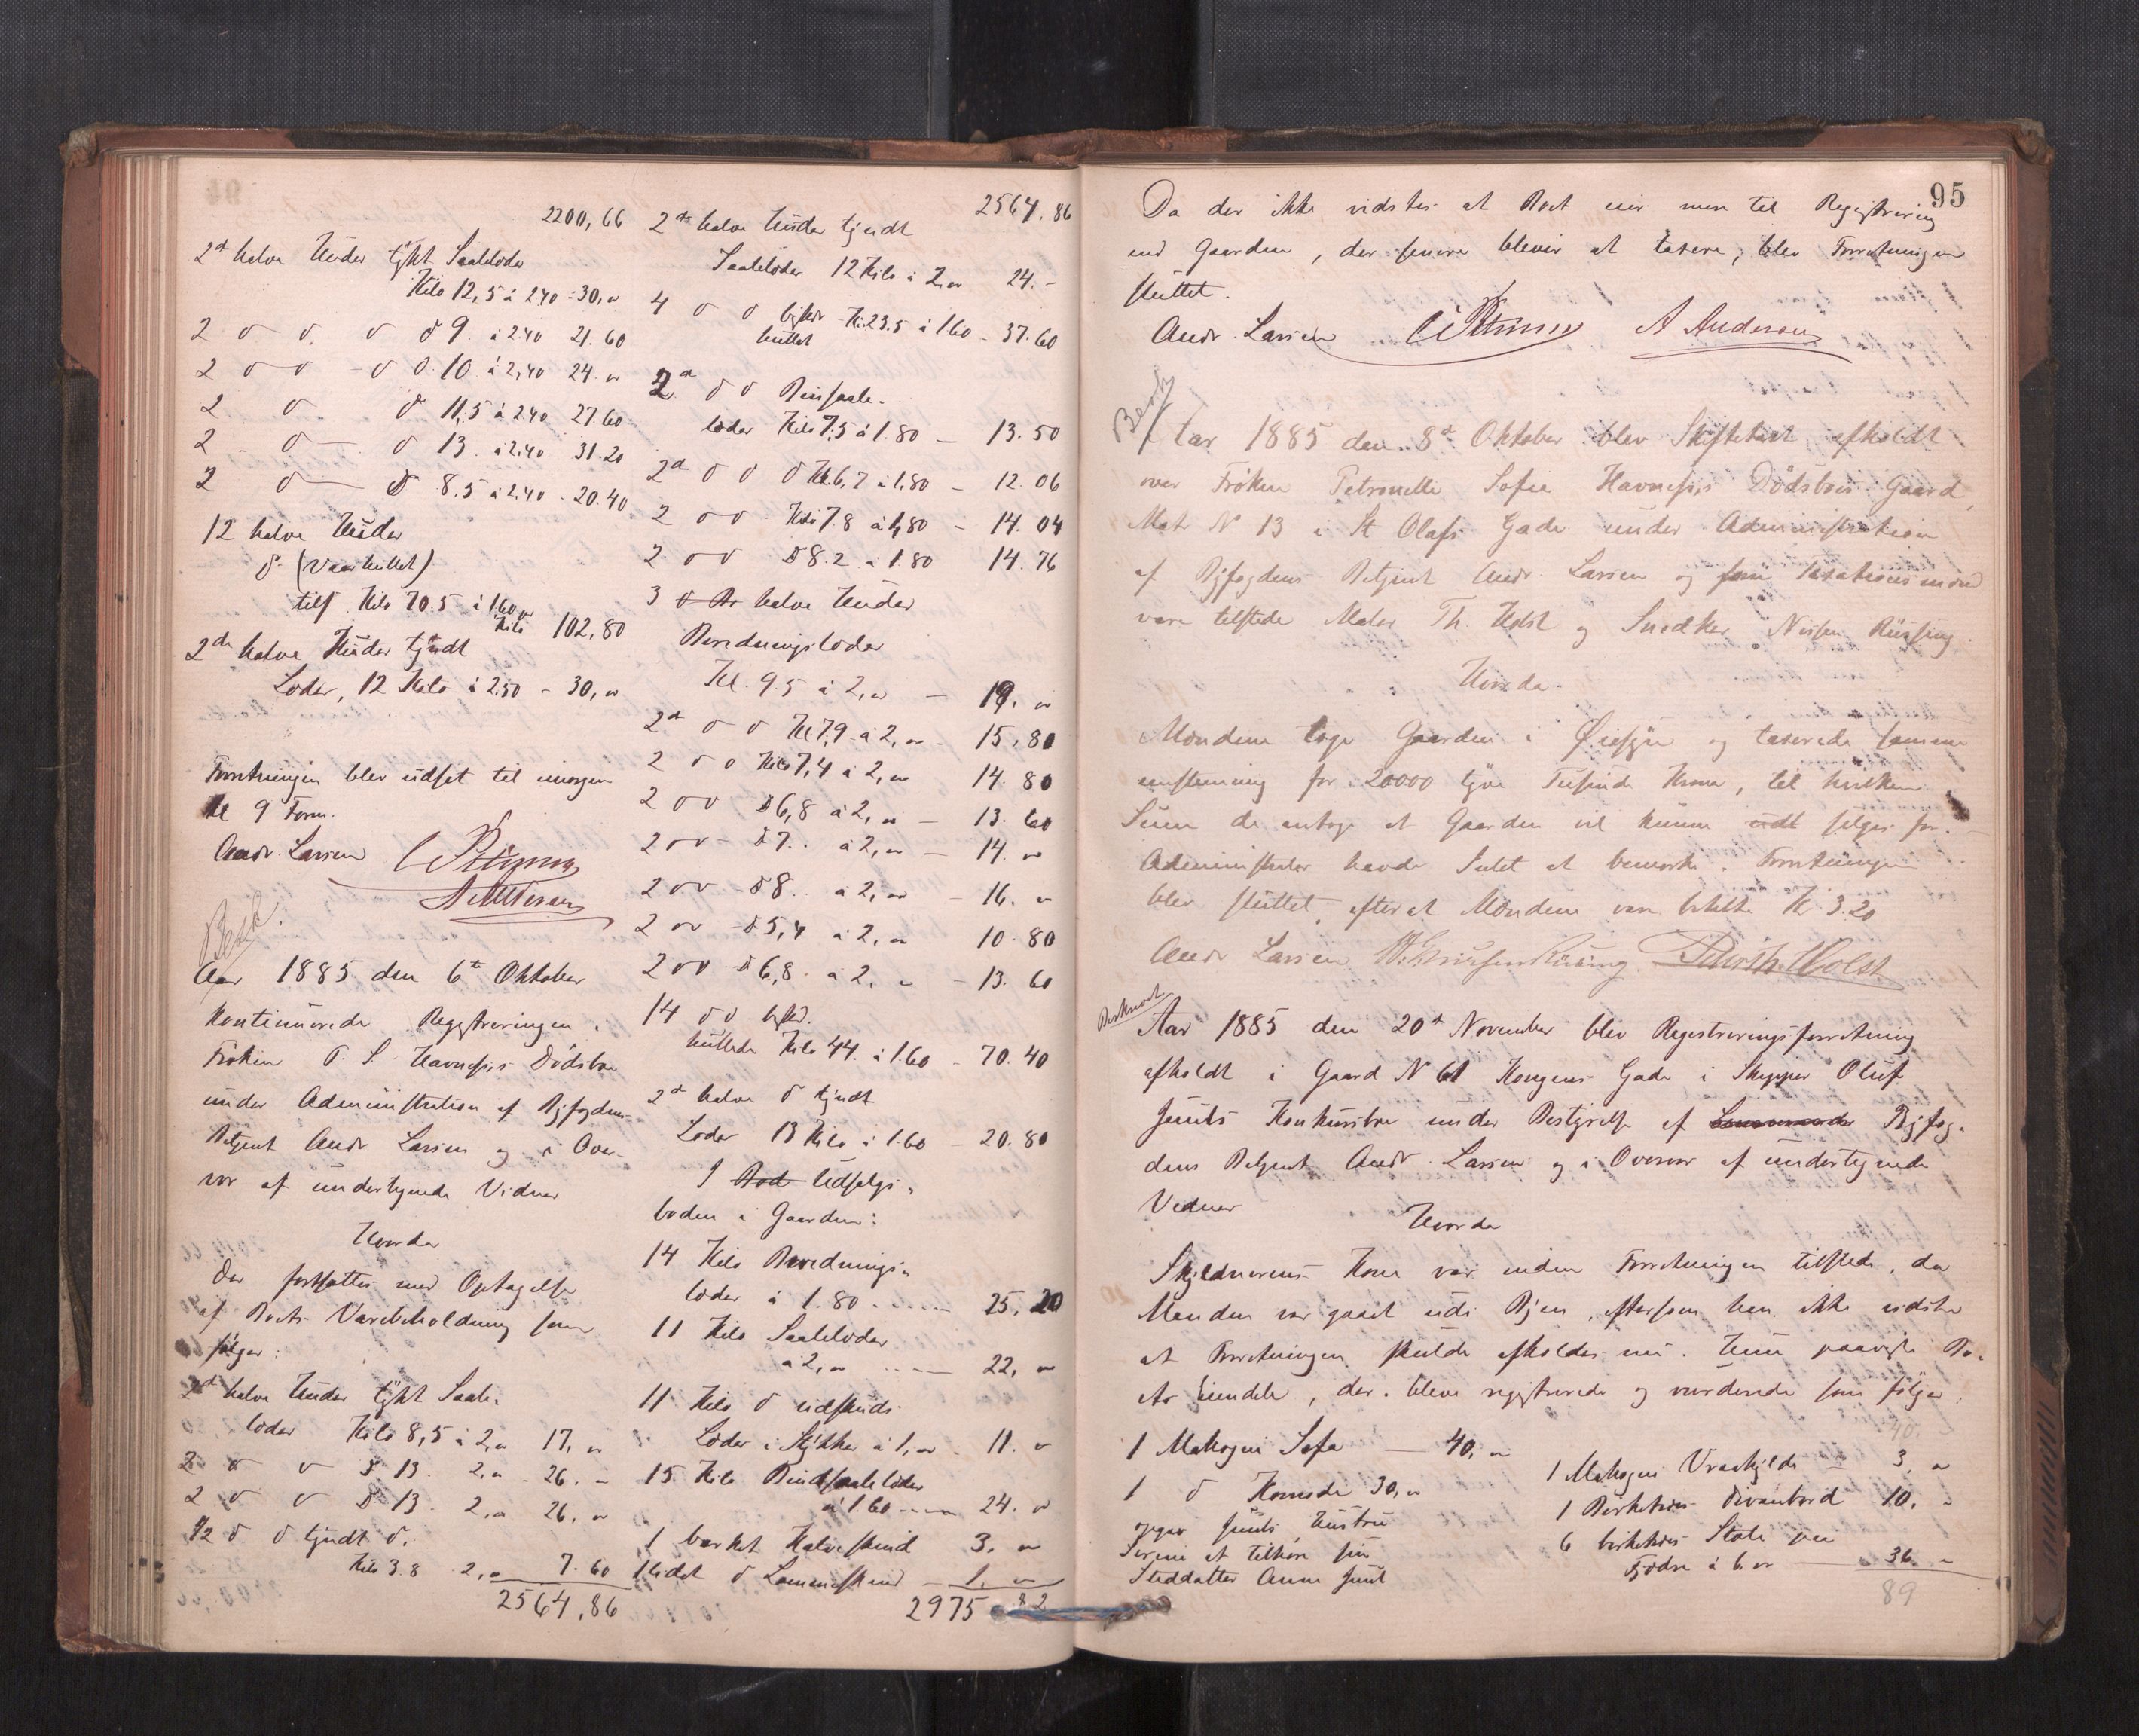 2200,66
2de halve Huder tykt Saalelæder
Kilo 12,5 à 240 = 30,"
2 do do. do do 9. à 2.40 21.60
2 do do - do do. 10. à 2,40 24. "
2 do. do 11,5 à 240 27.60
2 do — do 13. à 2.40 31.20
2 do — do 8.5 à 2.40 . 20.40
12 halve Huder
do. (Vaarhullet)
tils Kilo 70.5 à 1.60
Kilo 102,80
2de halve Huder tyndt
Læder, 12 Kilo à 2.50 - 30, "
Forretningen blev udsat til imorgen
Kl 9 Form.
Andr. Larsen
A Anderson
Besk.
Aar 1885 den 6te Oktober
kontinuerede Registreringen i
Frøken P. S. Havnes's Dødsbo
under Administration af Byfogdens
Betjent Andr Larsen og i Over-
vær af undertegnede Vidner
Hvorda
Der fortsattes med Optagelse
af Boets Varebeholdning som
følger:
2de halve Huder tykt Saale-
læder Kilo 8,5 à 2," 17, "
2 do do do 13. 2," - 26. "
2 do do do 13 - 2," 26, "
1/2 do do tyndt do.
Kilo 3.8 2," 7.60
2564,86
2564.86
2de halve Huder tyndt
Saalelæder 12 Kilo à 2," 24. -
4 do do Ki. 23.5 à 1.60 - 37.60
hullet
2de do do Binsaale-
læder Kilo 7,5 à 1.80 — 13.50
2de do do do Kl. 6,7 à 1.80 — 12.06
2 do do Kilo 7.8 à 1,80 — 14.04
2 do do do 8.2 à 1.80 14.76
3 do halve Huder
Beredningslæder
Kl. 9.5 à 2," — 19. "
2de do do Kl 7,9 à 2," - 15,80
2 do do Kilo 7,4 à 2," 14.80
2 do do do 6,8 à 2, " — 13.60
2 do do - do 7.. à 2," — 14. "
2 do do - do 8.. à 2," — 16. "
2 do do - do 5,4 à 2, " 10.80
2 do do do 6,8. à 2. " - 13.60
14 do do
hullede Kilo 44. à 1.60 - 70.40
2de halve do tyndt
Læder 13 Kilo à 1.60 - 20.80
I Bod Udsalgs-
boden i Gaarden:
14 Kilo Berednings-
læder à 1.80 ..... 25,20
11 Kilo Saalelæder
à 2, " .... — 22, "
11 Kilo do udskuds
Læder i Stykker à 1," - 11. "
15 Kilo Bindsaalelæder
à 1.60 —— 24. "
1 barket Kalveskind 3. "
1 lidet do Lammeskind — 1. "
2975 82
95
Da der ikke vidstes at Boet eier mere til Registrering
end Gaarden, der senere bliver at taxere, blev Forretningen
sluttet.
Andr. Larsen A Anderson
Besk
Aar 1885 den 8de Oktober blev Skiftetaxt afholdt
over Frøken Petronelle Sofie Havnes's Dødsboes Gaard,
Mat N 13 i St Olafs Gade under Administration
af Byfogdens Betjent Andr. Larsen og som Taxationsmænd
vare tilstede Maler Th. Holst og Snedker Nissen Rüssing.
Hvorda.
Mændene toge Gaarden i Øiesyn og taxerede samme
enstemmig for 20000 tyve Tusinde Kroner, til hvilken
Sum de antog at Gaarden vil kunne udt sælges for.
Administrator havde Intet at bemærke. Forretningen
blev sluttet, efterat Mændene vare betalte K 3.20
Andr Larsen Holst
Beskrevet
Aar 1885 den 20de November blev Registreringsforretning
afholdt i Gaard N 61 Kongens Gade i Skipper Oluf
Juuls Konkursbo under Bestyrelse af Byfog-
dens Betjent Andr. Larsen og i Overvær af undertegnede
Vidner
Hvorda
Skyldnerens Kone var under Forretningen tilstede, da
Manden var gaaet ud i Byen, eftersom han ikke vidste
at Forretningen skulde afholdes nu. Hun paaviste Bo-
ets Eiendele, der. bleve registrerede og vurderede som følger:
1 Mahogni Sofa — 40, "
1 do Komode 30,"
opgav Juuls Hustru
Serine at tilhøre sin
Steddatter Anna Juul
40.
1 Mahogni Vraaskylde — 3. "
1 Birketræes Divanbord 10. "
6 birketræes Stole paa
Fjedre à 6. " — 36. "
89